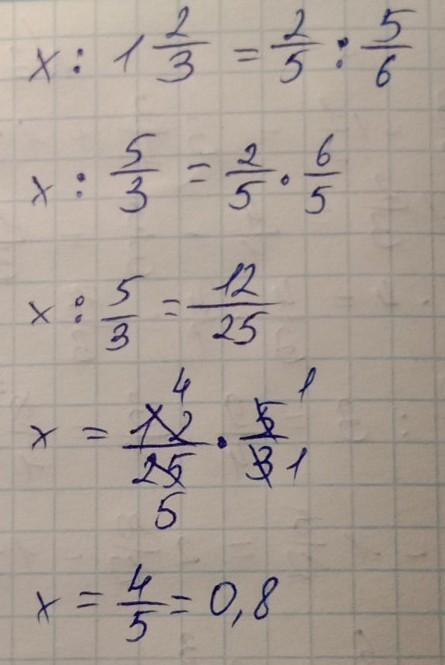 x : 1 2/3 = 2/5 : 5/6
x : 5/3 = 2/5 · 6/5
x : 5/3 = 12/25
4 1
x = 12/25 · 5/3 1
5
x = 4/5 = 0,8